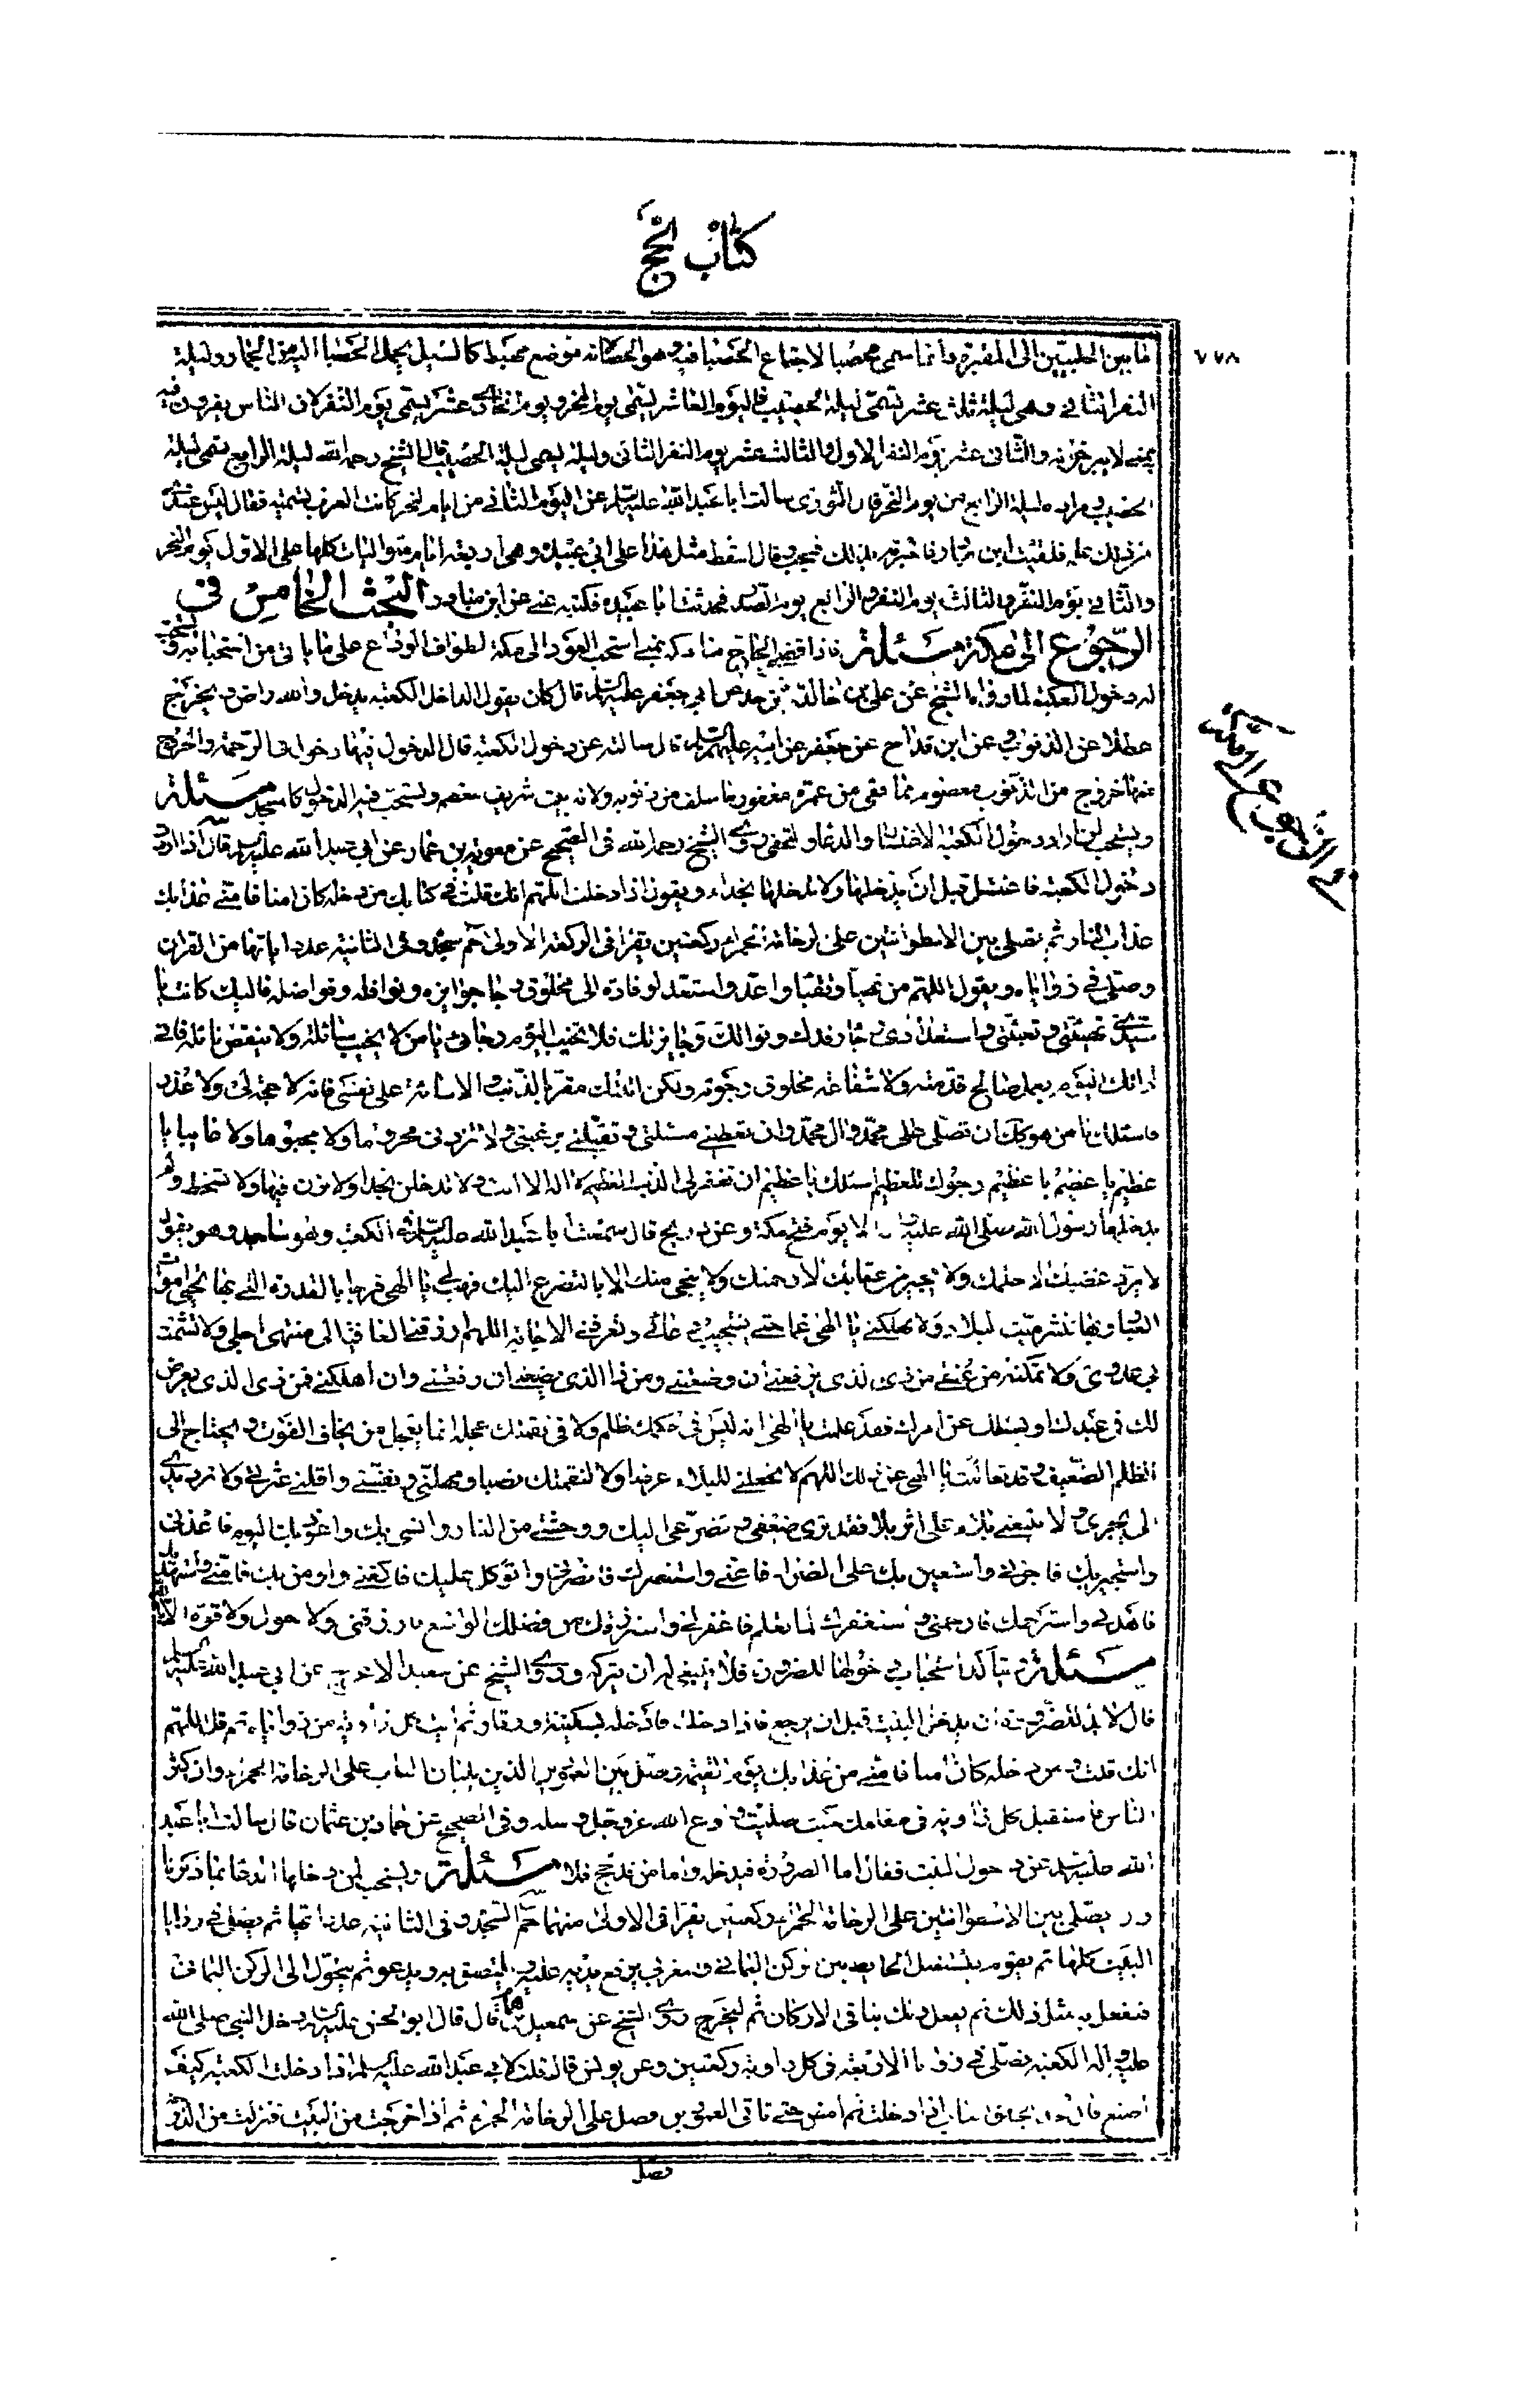 كتاب الحج
٧٧٨
ما بين الجبلين الى المقبرة وانما سمي محصبا لاجتماع الحصباء فيه وهو الحصا لانه موضع منهبط كالسيل يحمل الحصباء اليه من الجمار وليلة
النفر الثاني وهي ليلة ثلث عشر تسمى ليلة التحصيب فاليوم العاشر يسمى يوم النحر ويوم الحادي عشر يسمى يوم النفر لان الناس يقرون فيه
بمنى لا يبرحونه والثاني عشر يوم النفر الاول والثالث عشر يوم النفر الثاني وليلة يسمى ليلة الحصيب قال الشيخ رحمه الله ليلة الرابع تسمى ليلة
الحصيب ومراده ليلة الرابع من يوم النحر قال الثوري سالت ابا عبيدة عن اليوم الثاني من ايام النحر كانت العرب تسميه فقال ليس عندي
من ذلك علم فلقيت ابن فاخبرته بذلك فتعجب وقال اسقط مثل هذا على ابي عبيدة وهي اربعة ايام متواليات كلها على الاول يوم النحر
والثاني يوم النفر والثالث يوم النفر والرابع يوم الصدر فحدثت ابا عبيده فكتبه عني عن ابن مناور البحث الخامس في
الرجوع الى مكة مسئلة فاذا قضى الحاج مناسكه بمنى استحب العود الى مكة لطواف الوداع على ما ياتي من استحبابه ويستحب
له دخول الكعبة لما رواه الشيخ عن علي بن خالد عمن حدثه عن ابي جعفر عليه السلم قال كان يقول الداخل الكعبة يدخل والله راض ويخرج
عطلا عن الذنوب وعن ابن قداح عن جعفر عن ابيه عليهما السلم قال سالته عن دخول الكعبة قال الدخول فيها دخول في الرحمة والخروج
عنها خروج من الذنوب معصوم فيما بقي من عمره مغفور ما سلف من ذنوبه ولانه بيت شريف معظم ويستحب فيه الدخول كالمسجد مسئلة
ويستحب لمن اراد دخول الكعبة الاغتسال والدعاء والتحفي روى الشيخ رحمه الله في الصحيح عن معوية بن عمار عن ابي عبد الله عليه السلم قال اذا اردت
دخول الكعبة فاغتسل قبل ان تدخلها ولا تدخلها بحذاء ويقول اذا دخلت اللهم انك قلت في كتابك من دخله كان امنا فامني من عذابك
عذاب النار ثم يصلي بين الاسطوانتين على الرخامة الحمراء ركعتين يقرا في الركعة الاولى حم سجدة وفي الثانية عدد اياتها من القران
وصلي في زواياه ويقول اللهم من تهيأ وتعبأ واعد واستعد لوفادة الى مخلوق رجاء جوايزه ونوافله وفواضله فاليك كانت يا
سيدي تهيئتي وتعبئتي واستعدادي رجاء رفدك ونوالك وجايزتك فلا تخيب اليوم رجائي يا من لا يخيب سائله ولا ينقص نائله فاني
لم اتك اليوم بعمل صالح قدمته ولا شفاعة مخلوق رجوته ولكن اتيتك مقرا بالذنوب والاسائة على نفسي فانه لا حجة لي ولا عذر
فاسئلك يا من هو كك ان تصلي على محمد وال محمد وان تعطيني مسئلتي وتقبلني برغبتي ولا تردني محروما ولا مجبوها ولا خايبا يا
عظيم يا عظيم يا عظيم ارجوك للعظيم اسئلك يا عظيم ان تغفر لي الذنب العظيم لا اله الا انت ولا تدخلن بحذاء ولا تبزق فيها ولا تمتخط ولم
يدخلها رسول الله صلى الله عليه واله الا يوم فتح مكة وعن ذريح قال سمعت ابا عبد الله عليه السلم في الكعبة وهو ساجد وهو يقول
لا يرد غضبك الا حلمك ولا يجير من عقابك الا رحمتك ولا ينجي منك الا بالتضرع اليك فهب لي يا الهي فرجا بالقدرة التي بها تحيي اموات
العباد وبها تنشر ميت البلاد ولا تهلكني يا الهي غما حتى يستجيب دعائي وتعرفني الاجابة اللهم ارزقني العافية الى منتهى اجلي ولا تشمت
بي عدوي ولا تمكنه من عنقي من ذي الذي يرفعني ان وضعتني ومن ذا الذي يضعني ان رفعتني وان اهلكتني فمن ذي الذي يعرض
لك في عبدك او يسئلك عن امرك فقد علمت يا الهي انه ليس في حكمك ظلم ولا في نقمتك عجلة انما يعجل من يخاف الفوت ويحتاج الى
الظلم الضعيف وقد تعاليت يا الهي عن ذلك اللهم لا تجعلني للبلاء غرضا ولا لنقمتك نصبا ومهلني ونفسني واقلني عثرتي ولا ترد يدي
الى نحري ولا تتبعني بلاء على اثر بلاء فقد ترى ضعفي وتضرعي اليك ووحشتي من الناس وانسي بك واعوذ بك اليوم فاعذني
واستجير بك فاجرني واستعين بك على الضراء فاعني واستنصرك فانصرني واتوكل عليك فاكفني واومن بك فامني واستهديك
فاهدني واسترحمك فارحمني واستغفرك لما تعلم فاغفر لي واسترزقك من فضلك الواسع فارزقني ولا حول ولا قوة الا بالله
مسئلة يتأكد استحباب دخولها للصرورة فلا ينبغي له ان يتركه روى الشيخ عن سعيد الاعرج عن ابي عبد الله عليه السلم
قال لا بد للصرورة ان يدخل البيت قبل ان يرجع فاذا دخلته فادخله بسكينة ووقار ثم ايت كل زاوية من زواياه ثم قل اللهم
انك قلت ومن دخله كان امنا فامني من عذابك يوم القيمة وصل بين العمودين الذين يليان الباب على الرخامة الحمراء وان كثر
الناس فاستقبل كل زاوية في مقامك حيث صليت وادع الله عز وجل وسله وفي الصحيح عن حماد بن عثمان قال سالت ابا عبد
الله عليه السلم عن دخول البيت فقال اما الصرورة فيدخله واما من قد حج فلا مسئلة ويستحب لمن دخلها الدعاء بما ذكرنا
وان يصلي بين الاسطوانتين على الرخامة الحمراء ركعتين يقرا في الاولى منهما حم السجدة وفي الثانية عدد اياتها ثم يصلي في زوايا
البيت كلها ثم يقوم يستقبل الحايط بين الركن اليماني والغربي يرفع يديه عليه ويلتصق به ويدعو ثم يتحول الى الركن اليماني
فيفعل به مثل ذلك ثم يفعل ذلك بباقي الاركان ثم ليخرج روى الشيخ عن اسمعيل بن همام قال قال ابو الحسن عليه السلم دخل النبي صلى الله
عليه واله الكعبة فصلى في زواياها الاربعة في كل زاوية ركعتين وعن يونس قال قلت لابي عبد الله عليه السلم اذا دخلت الكعبة كيف
اصنع قال خذ بحلقتي الباب اذا دخلت ثم امض حتى تاتي العمودين فصل على الرخامة الحمراء ثم اذا خرجت من البيت فنزلت من الدرجة
فصل
في الرجوع الى مكة